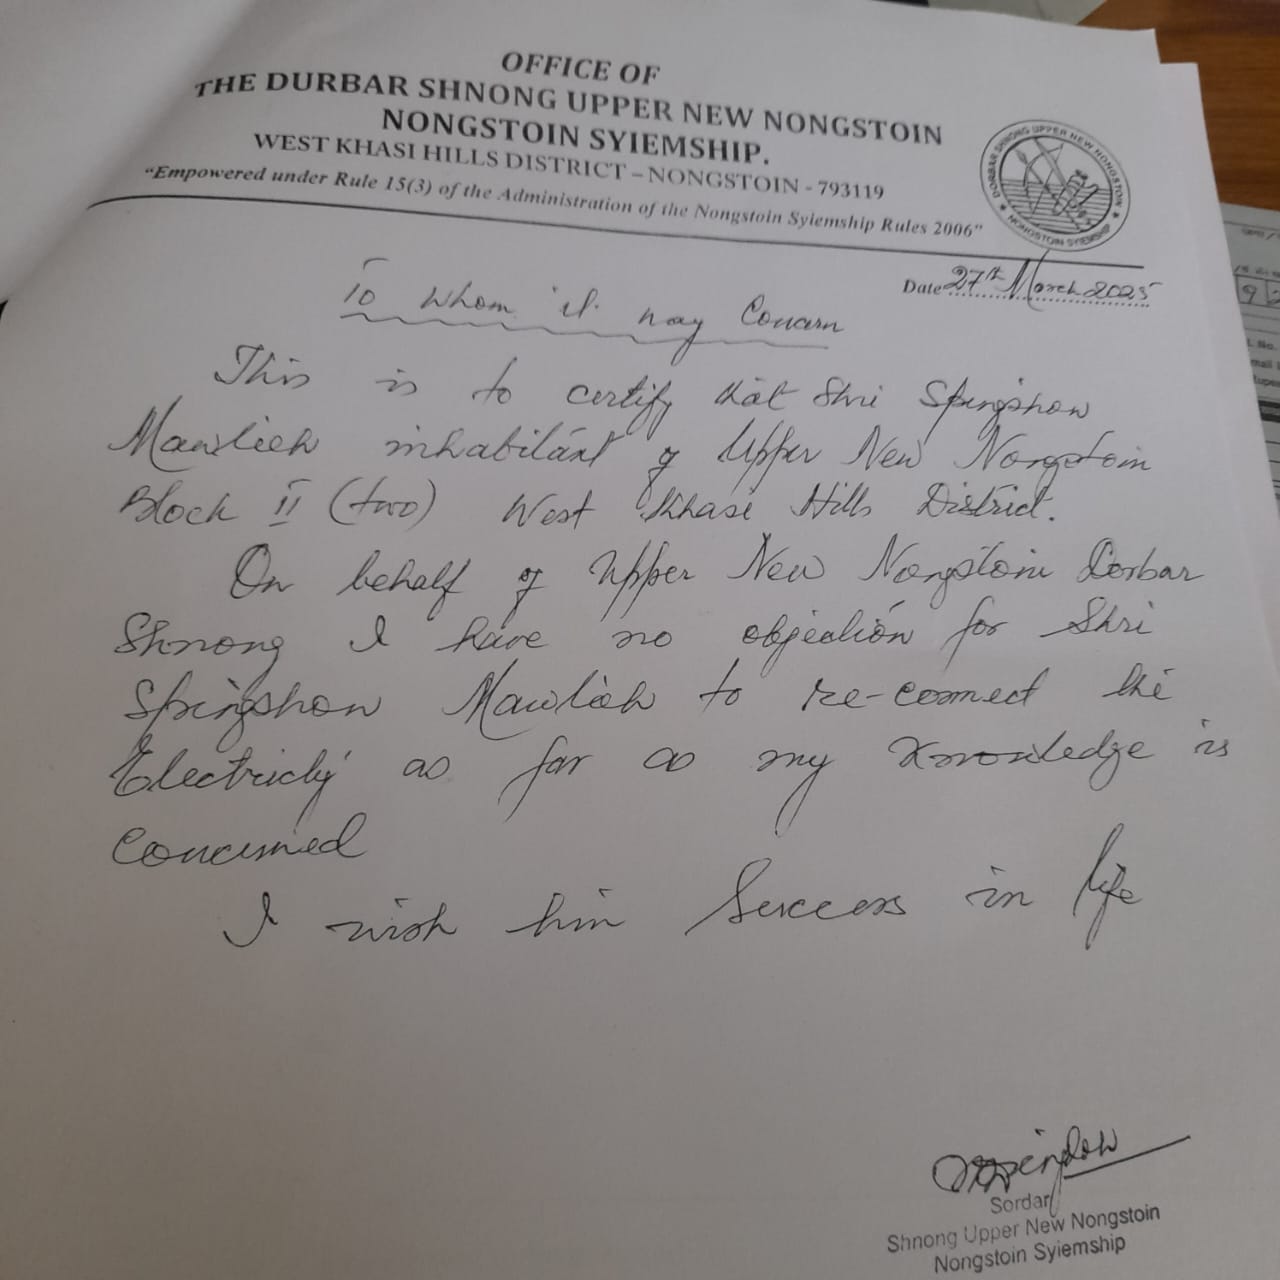 OFFICE OF
THE DURBAR SHNONG UPPER NEW NONGSTOIN
NONGSTOIN SYIEMSHIP.
WEST KHASI HILLS DISTRICT – NONGSTOIN - 793119
"Empowered under Rule 15(3) of the Administration of the Nongstoin Syiemship Rules 2006"
DORBAR SHNONG UPPER NEW NONGSTOIN
★ NONGSTOIN SYIEMSHIP ★
Date 27th March 2025
To whom it may Concern
This is to certify that Shri Springshon
Mawlieh inhabitant of Upper New Nongstoin
Block II (two) West Khasi Hills District.
On behalf of Upper New Nongstoin Dorbar
Shnong I have no objection for Shri
Springshon Mawlieh to re-connect the
Electricity as far as my Knowledge is
concerned
I wish him Success in life
Sordar
Shnong Upper New Nongstoin
Nongstoin Syiemship
No.